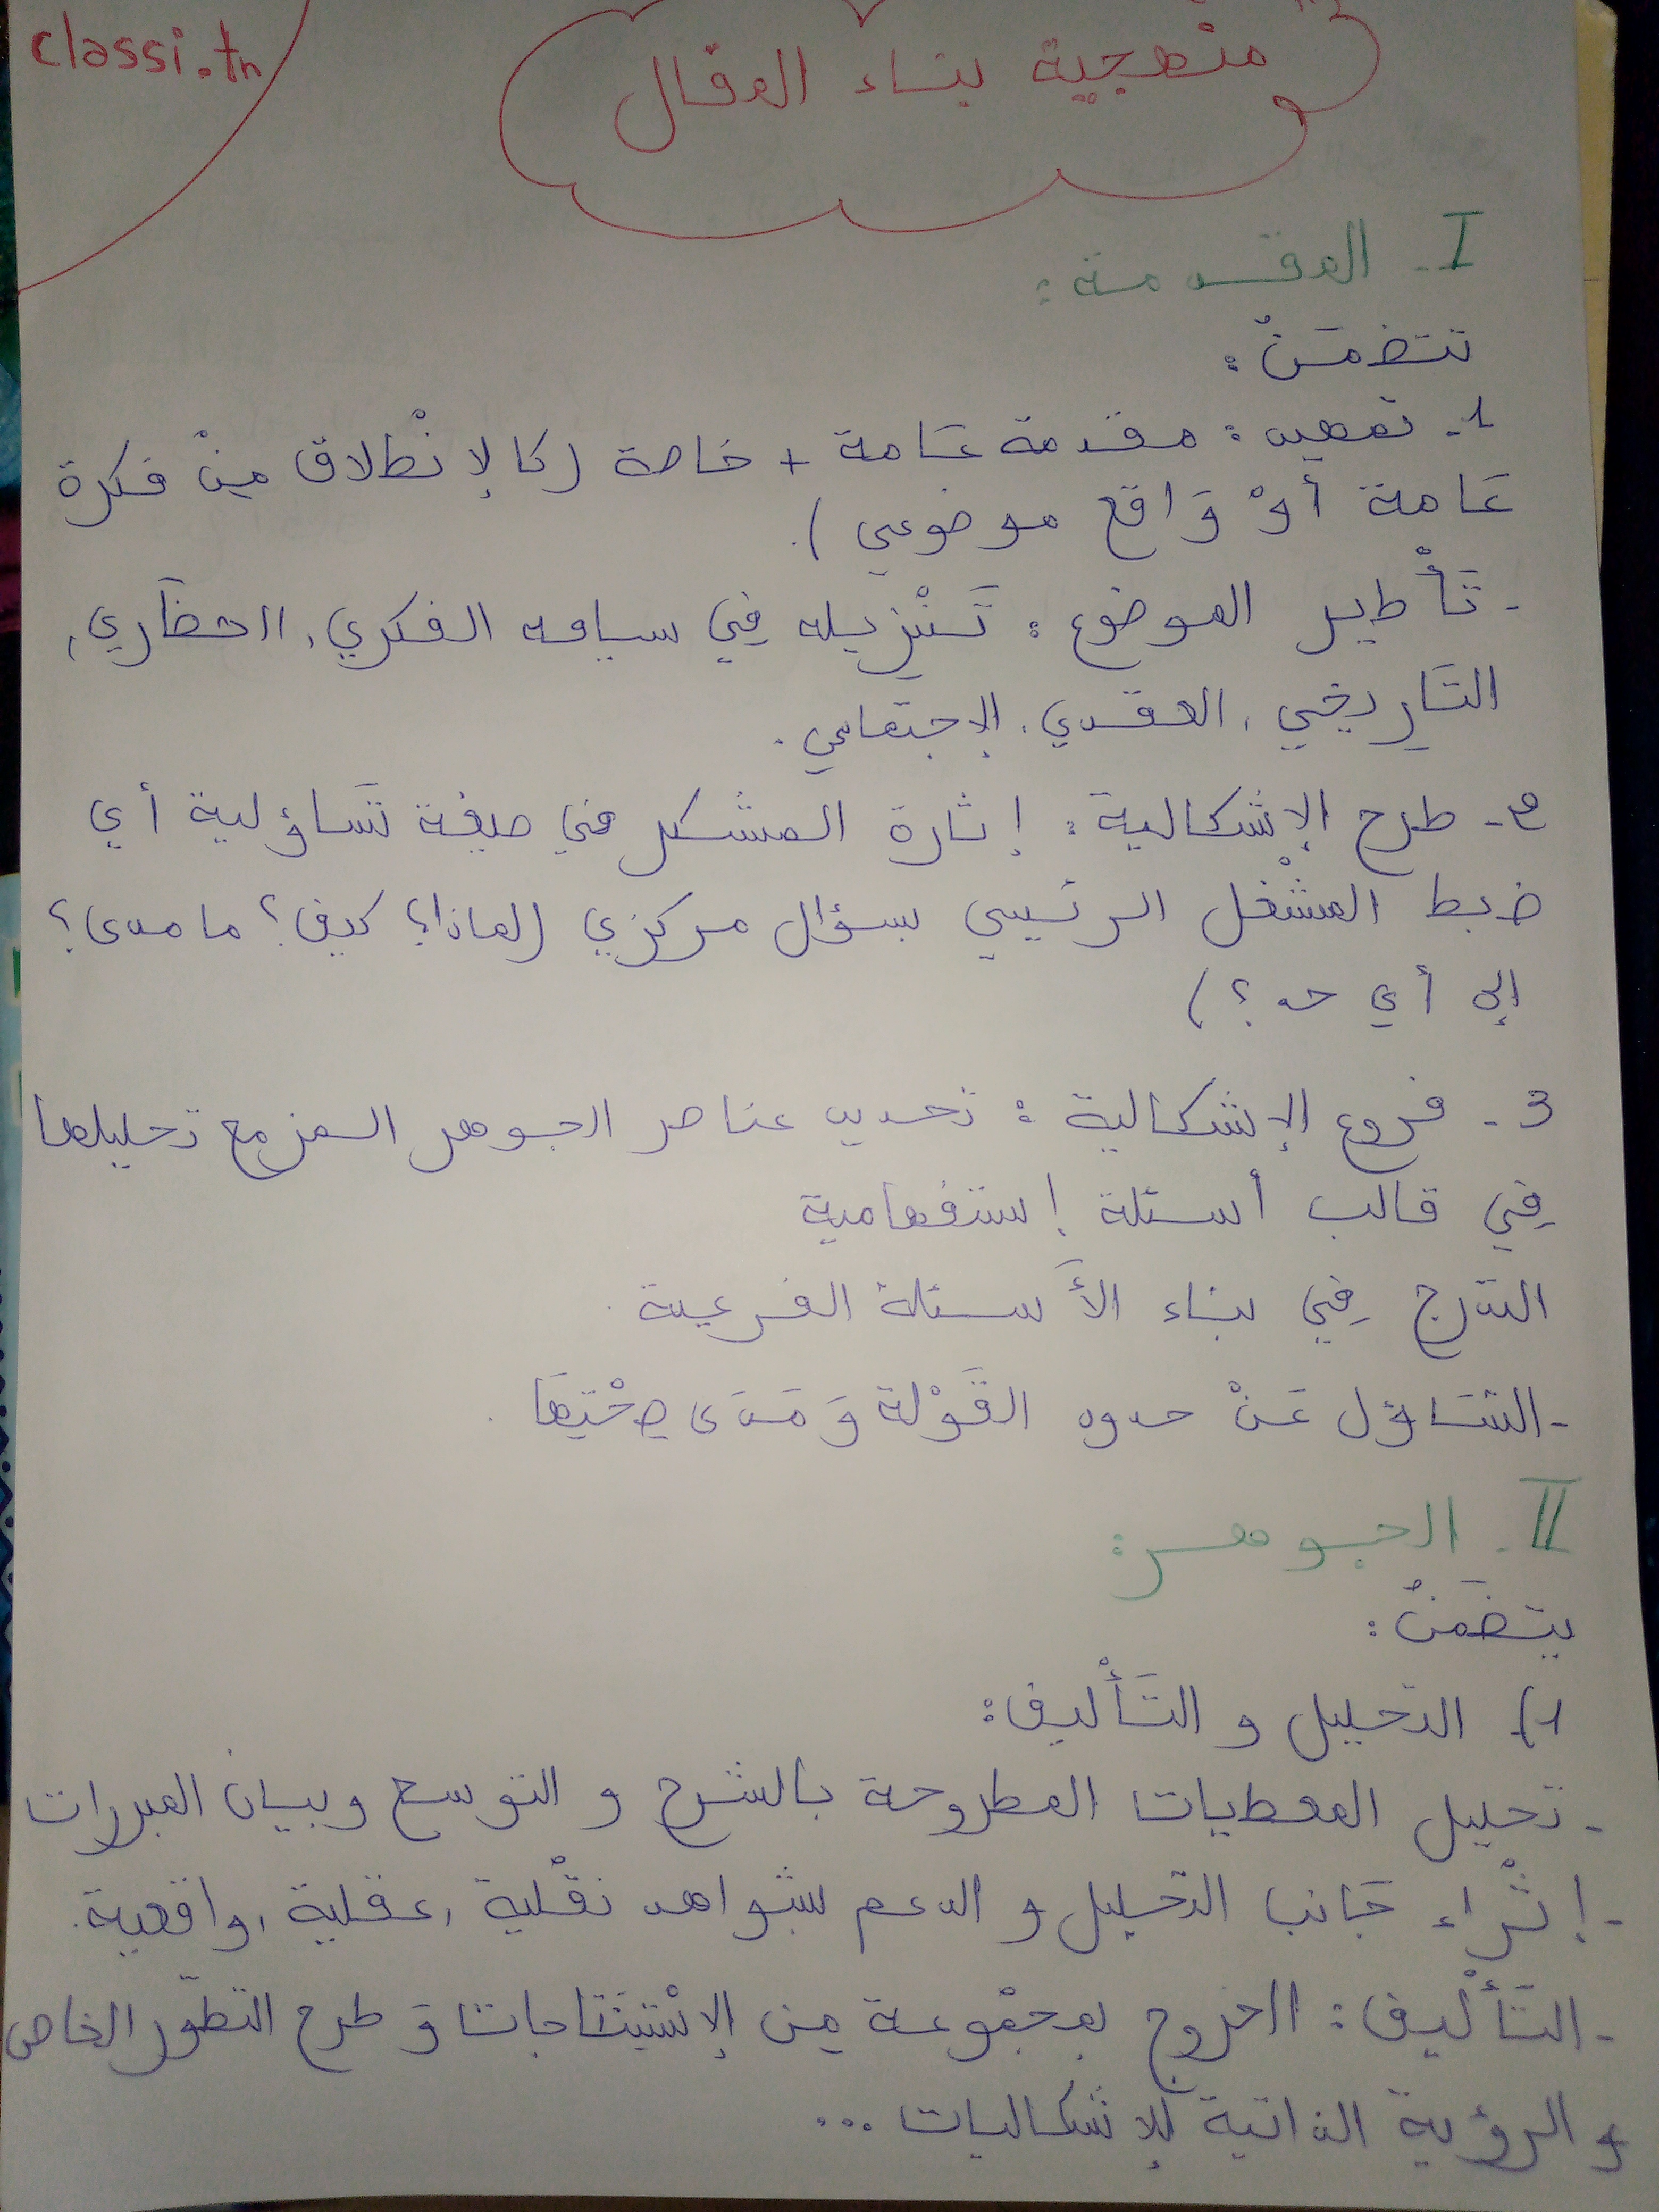 classi.tn
منهجية بناء المقال
I- المقدمة:
تتضمن:
1- تمهيد: مقدمة عامة + خاصة (كالإنطلاق من فكرة
عامة أو واقع موضوعي).
- تأطير الموضوع: تنزيله في سياقه الفكري، الحضاري،
التاريخي، العقدي، الإجتماعي.
2- طرح الإشكالية: إثارة المشكل في صيغة تساؤلية أي
ضبط المشغل الرئيسي بسؤال مركزي (لماذا؟ كيف؟ ما مدى؟
إلى أي حد؟)
3- فروع الإشكالية: تحديد عناصر الجوهر المزمع تحليلها
في قالب أسئلة إستفهامية
التدرج في بناء الأسئلة الفرعية.
- التساؤل عن حدود القولة و مدى صحتها.
II- الجوهر:
يتضمن:
1) التحليل و التأليف:
- تحليل المعطيات المطروحة بالشرح و التوسع وبيان المبررات
- إثراء جانب التحليل و الدعم بشواهد نقلية، عقلية، واقعية.
- التأليف: الخروج بمجموعة من الإستنتاجات و طرح التطور الخاص
و الرؤية الذاتية للإشكاليات ...